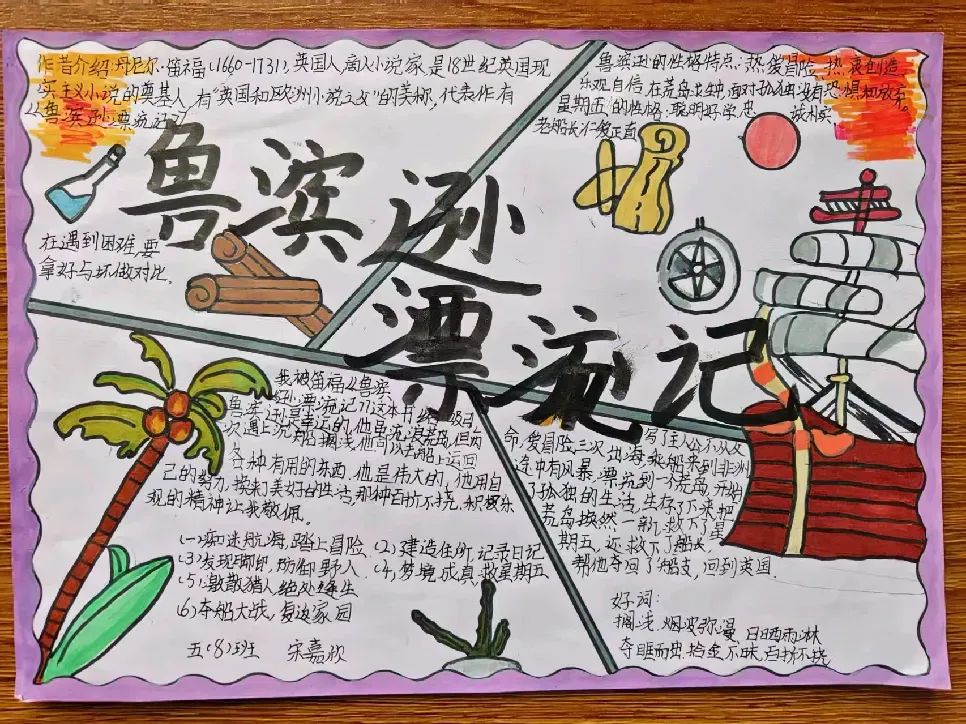 作者介绍 丹尼尔·笛福(1660-1731),英国人,小说家,是18世纪英国现
实主义小说的奠基人,有“英国和欧洲小说之父”的美称,代表作有
《鲁滨逊漂流记》
鲁滨逊的性格特点:热爱冒险、热衷创造、
乐观自信,在荒岛生中,面对孤独没有恐惧和放弃。
星期五的性格:聪明好学、忠诚朴实
老船长仁爱正直
鲁滨逊
漂流记
在遇到困难,要
拿好与坏做对比。
我被笛福《鲁滨
逊漂流记》这本书给
鲁滨逊是幸运的,他
次遇上沉船搁浅,他可以去船上运回
各种有用的东西,他是伟大的,他用自
己的努力,换来美好的生活,那种百折不挠,积极乐
观的精神让我敬佩。
(1)痴迷航海,踏上冒险 (2)建造住所,记录日记
(3)发现脚印,防御野人 (4)梦境成真,救星期五
(5)激散猎人,绝处逢生
(6)夺船大战,复返家园
五(8)班 宋嘉欣
写了主人公不从父
命,爱冒险,三次出海,乘船来到非洲
途中有风暴,漂流到一个荒岛,开始
了孤独的生活,生存了下来,把
荒岛焕然一新,救下了星
期五,还救下了船长,
帮他夺回了船支,回到英国。
好词:
搁浅、烟波弥漫、日晒雨淋
夺眶而出、拾金不昧、百折不挠